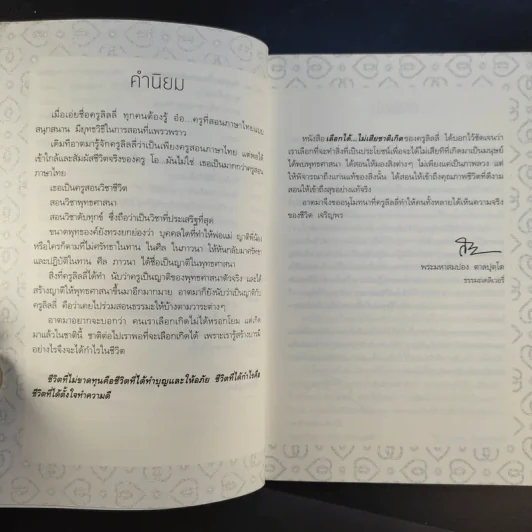 คำนิยม
เมื่อเอ่ยชื่อครูลิลลี่ ทุกคนต้องรู้ อ๋อ...ครูที่สอนภาษาไทยแบบ
สนุกสนาน มียุทธวิธีในการสอนที่แพรวพราว
เดิมทีอาตมารู้จักครูลิลลี่ว่าเป็นเพียงครูสอนภาษาไทย แต่พอได้
เข้าใกล้และสัมผัสชีวิตจริงของครู โอ...มันไม่ใช่ เธอเป็นมากกว่าครูสอน
ภาษาไทย
เธอเป็นครูสอนวิชาชีวิต
สอนวิชาพุทธศาสนา
สอนวิชาดับทุกข์ ซึ่งถือว่าเป็นวิชาที่ประเสริฐที่สุด
ขนาดพุทธองค์ยังทรงยกย่องว่า บุคคลใดที่ทำให้พ่อแม่ ญาติพี่น้อง
หรือใครก็ตามที่ไม่ศรัทธาในทาน ในศีล ในภาวนา ให้หันกลับมาศรัทธา
และปฏิบัติในทาน ศีล ภาวนา ได้ชื่อเป็นญาติในพุทธศาสนา
สิ่งที่ครูลิลลี่ได้ทำ นับว่าครูเป็นญาติของพุทธศาสนาตัวจริง และได้
สร้างญาติให้พุทธศาสนาขึ้นมาอีกมากมาย อาตมาก็ยังนับว่าเป็นญาติกับ
ครูลิลลี่ คือว่าเคยไปร่วมสอนธรรมะให้บ้างตามวาระต่างๆ
อาตมาอยากจะบอกว่า คนเราเลือกเกิดไม่ได้หรอกโยม แต่เกิด
มาแล้วในชาตินี้ ชาติต่อไปเราพอที่จะเลือกเกิดได้ เพราะเรารู้สร้างบารมี
อย่างไรจึงจะได้กำไรในชีวิต
ชีวิตที่ไม่ขาดทุนคือชีวิตที่ได้ทำบุญและให้อภัย ชีวิตที่ได้กำไรคือ
ชีวิตที่ได้ตั้งใจทำความดี
หนังสือ เลือกได้...ไม่เสียชาติเกิด ของครูลิลลี่ ได้บอกไว้ชัดเจนว่า
เราเลือกที่จะทำสิ่งที่เป็นประโยชน์เพื่อจะได้ไม่เสียทีที่เกิดมาเป็นมนุษย์
ได้พบพุทธศาสนา ได้สอนให้มองสิ่งต่างๆ ไม่เพียงแต่เป็นภาพลวง แต่
ให้พิจารณาถึงแก่นแท้ของสิ่งนั้น ได้สอนให้เข้าถึงคุณภาพชีวิตที่ดีงาม
สอนให้เข้าถึงสุขอย่างแท้จริง
อาตมาจึงขออนุโมทนาที่ครูลิลลี่ทำให้คนทั้งหลายได้เห็นความจริง
ของชีวิต เจริญพร
พระมหาสมปอง ตาลปุตฺโต
ธรรมะเดลิเวอรี่